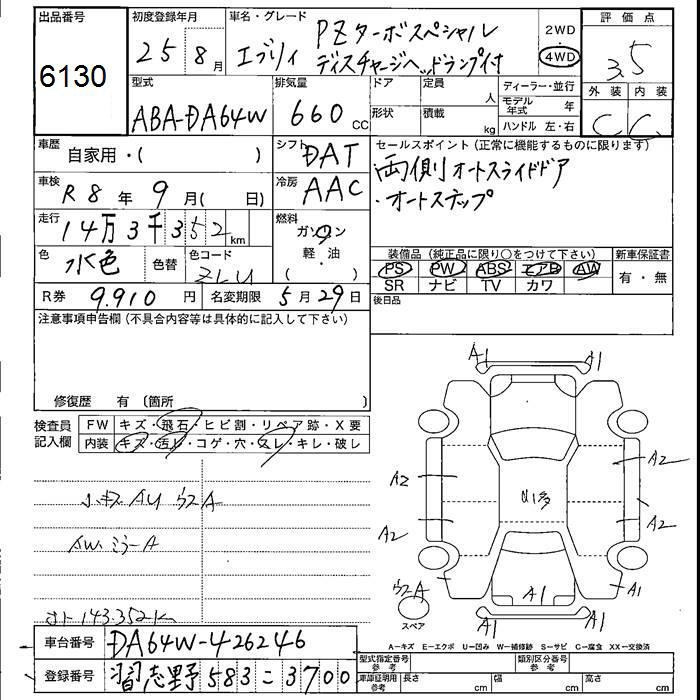 出品番号
6130
初度登録年月
25 8月
車名・グレード
エブリィ PZターボスペシャル
ディスチャージヘッドランプ付
2WD
4WD
評価点
3.5
外装 内装
C C
型式
ABA-DA64W
排気量
660 CC
ドア
形状
定員 人
積載 kg
ディーラー・並行
モデル年式 年
ハンドル 左・右
車歴
自家用・( )
シフト
DAT
セールスポイント(正常に機能するものに限ります)
・両側オートスライドドア
・オートステップ
車検
R8年9月( 日)
冷房
AAC
走行
14万3千352km
燃料
ガソリン
軽・油
( )
色
水色
色替
色コード
ZLU
装備品(純正品に限り○をつけて下さい)
PS PW ABS エアB AW
SR ナビ TV カワ
新車保証書
有・無
後日品
R券 9.910円
名変期限 5月29日
注意事項申告欄(不具合内容等は具体的に記入して下さい)
修復歴 有〔箇所 〕
検査員記入欄
FW キズ・飛石・ヒビ割・リペア跡・X要
内装 キズ・汚レ・コゲ・穴・スレ・キレ・破レ
小キズAU ウスA
AWミラーA
メーター143.352K
A1 A1
A2 A2
U1多
A2 A2
ウスA
A1
A1
A1 A1
スペア
A-キズ E-エクボ U-凹み W-補修跡 S-サビ C-腐食 XX-交換済
車台番号
DA64W-426246
登録番号
習志野583こ3700
型式指定番号 参考
類別区分番号 参考
車庫証明用 参考
長さ cm
幅 cm
高さ cm